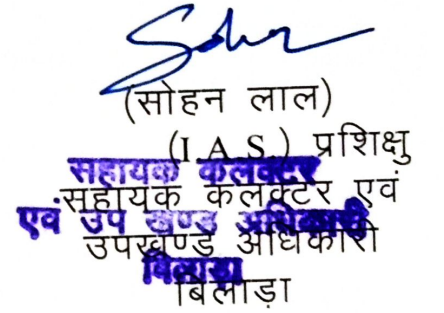 (सोहन लाल)
(I.A.S.) प्रशिक्षु
सहायक कलक्टर
सहायक कलक्टर एवं
एवं उप खण्ड अधिकारी
उपखण्ड अधिकारी
बिलाड़ा
बिलाड़ा